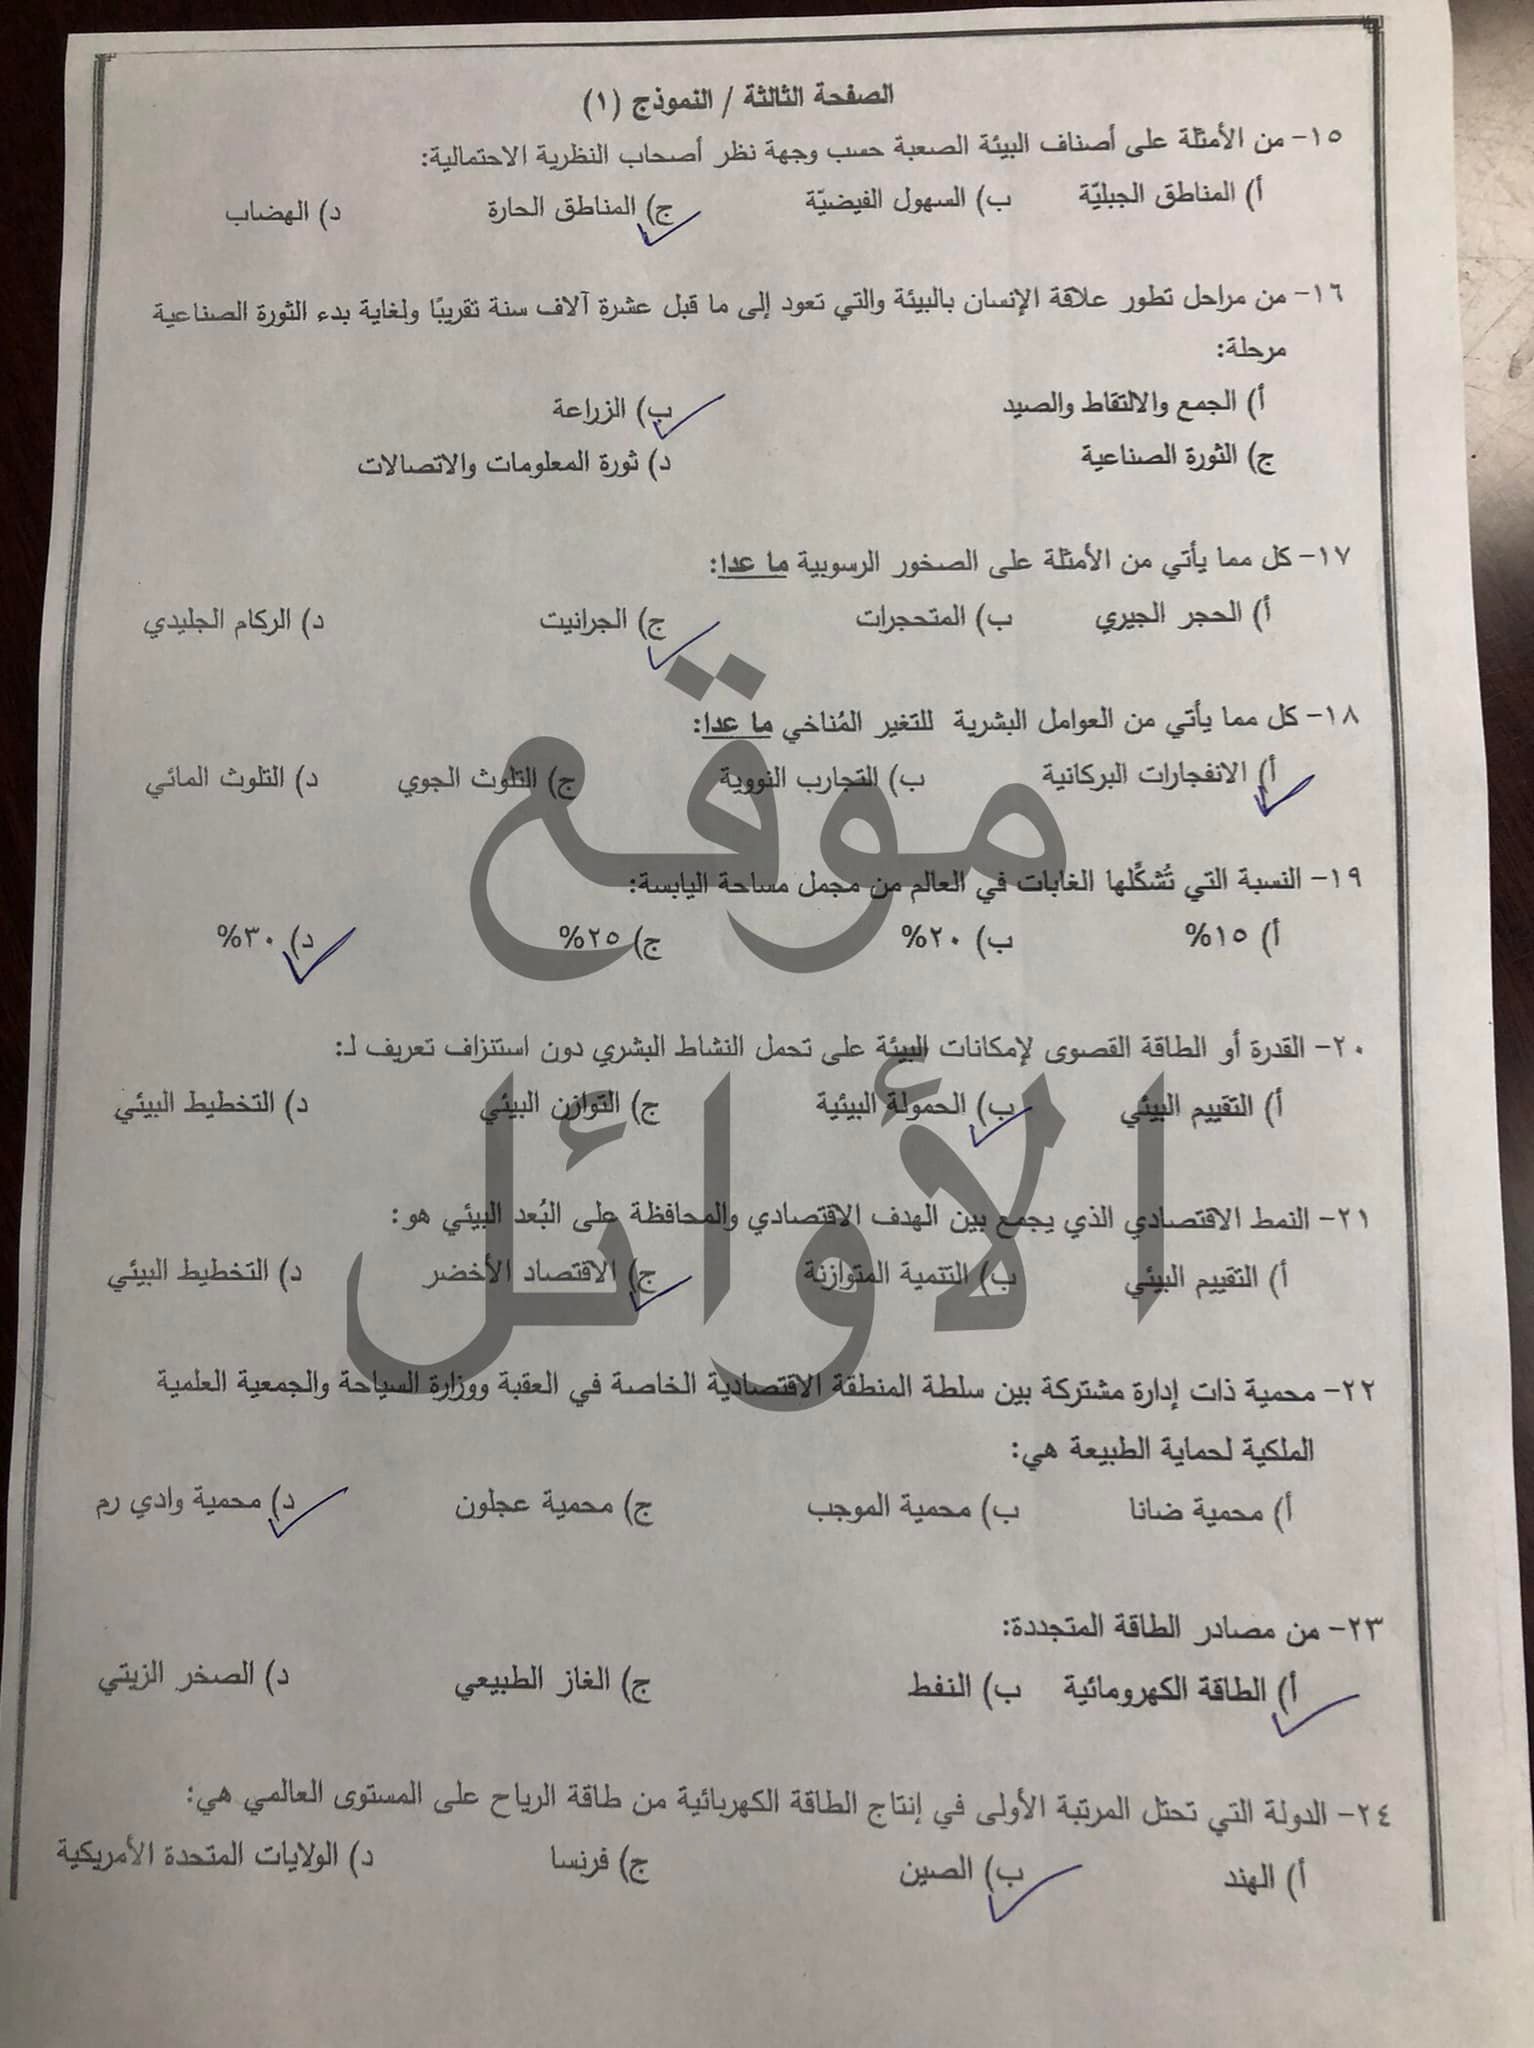 الصفحة الثالثة / النموذج (١)
١٥- من الأمثلة على أصناف البيئة الصعبة حسب وجهة نظر أصحاب النظرية الاحتمالية:
أ) المناطق الجبليّة ب) السهول الفيضيّة ج) المناطق الحارة د) الهضاب
١٦- من مراحل تطور علاقة الإنسان بالبيئة والتي تعود إلى ما قبل عشرة آلاف سنة تقريبًا ولغاية بدء الثورة الصناعية
مرحلة:
أ) الجمع والالتقاط والصيد ب) الزراعة
ج) الثورة الصناعية د) ثورة المعلومات والاتصالات
١٧- كل مما يأتي من الأمثلة على الصخور الرسوبية ما عدا:
أ) الحجر الجيري ب) المتحجرات ج) الجرانيت د) الركام الجليدي
١٨- كل مما يأتي من العوامل البشرية للتغير المُناخي ما عدا:
أ) الانفجارات البركانية ب) التجارب النووية ج) التلوث الجوي د) التلوث المائي
١٩- النسبة التي تُشكِّلها الغابات في العالم من مجمل مساحة اليابسة:
أ) ١٥% ب) ٢٠% ج) ٢٥% د) ٣٠%
٢٠- القدرة أو الطاقة القصوى لإمكانات البيئة على تحمل النشاط البشري دون استنزاف تعريف لـ:
أ) التقييم البيئي ب) الحمولة البيئية ج) التوازن البيئي د) التخطيط البيئي
٢١- النمط الاقتصادي الذي يجمع بين الهدف الاقتصادي والمحافظة على البُعد البيئي هو:
أ) التقييم البيئي ب) التنمية المتوازنة ج) الاقتصاد الأخضر د) التخطيط البيئي
٢٢- محمية ذات إدارة مشتركة بين سلطة المنطقة الاقتصادية الخاصة في العقبة ووزارة السياحة والجمعية العلمية
الملكية لحماية الطبيعة هي:
أ) محمية ضانا ب) محمية الموجب ج) محمية عجلون د) محمية وادي رم
٢٣- من مصادر الطاقة المتجددة:
أ) الطاقة الكهرومائية ب) النفط ج) الغاز الطبيعي د) الصخر الزيتي
٢٤- الدولة التي تحتل المرتبة الأولى في إنتاج الطاقة الكهربائية من طاقة الرياح على المستوى العالمي هي:
أ) الهند ب) الصين ج) فرنسا د) الولايات المتحدة الأمريكية
موقع
الأوائل